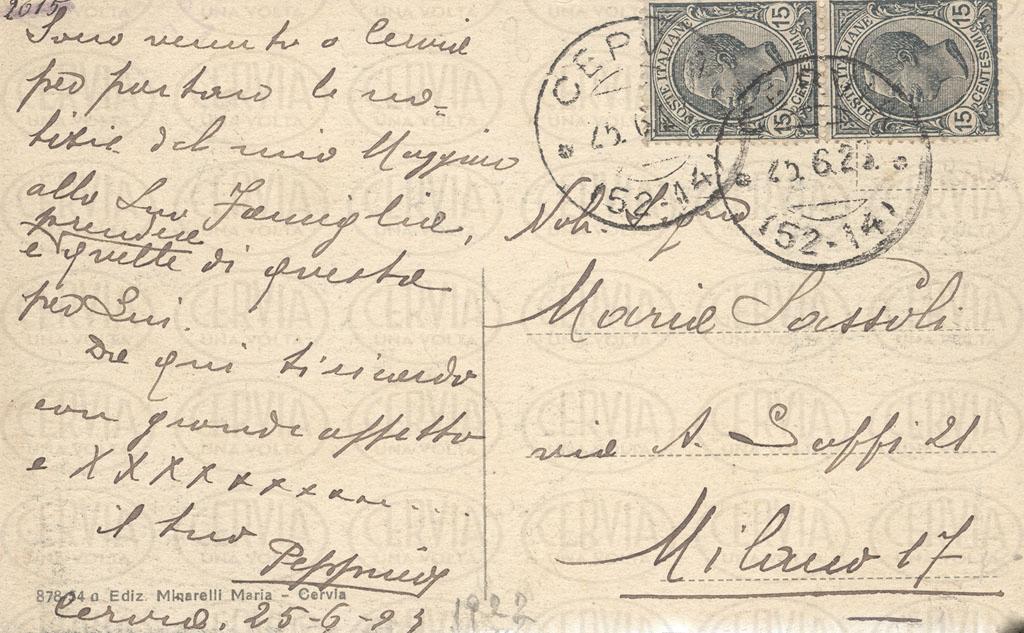 2015
Sono venuto a Cervia
per portare le no-
tizie del mio Maggiore
alla Sua Famiglia,
prendere
e quelle di questa
per Lui.
Da qui ti ricordo
con grande affetto
e X X X X x x x x x ....
il tuo
Peppino
878,34 a Ediz. Minarelli Maria - Cervia
Cervia, 25-6-23
1922
POSTE ITALIANE
15 CENTESIMI 15
POSTE ITALIANE
15 CENTESIMI 15
CERVIA
25.6
(52-14)
25.6.2
(52-14)
Nob. Sig.na
Maria Sassoli
via A. Saffi 21
Milano 17